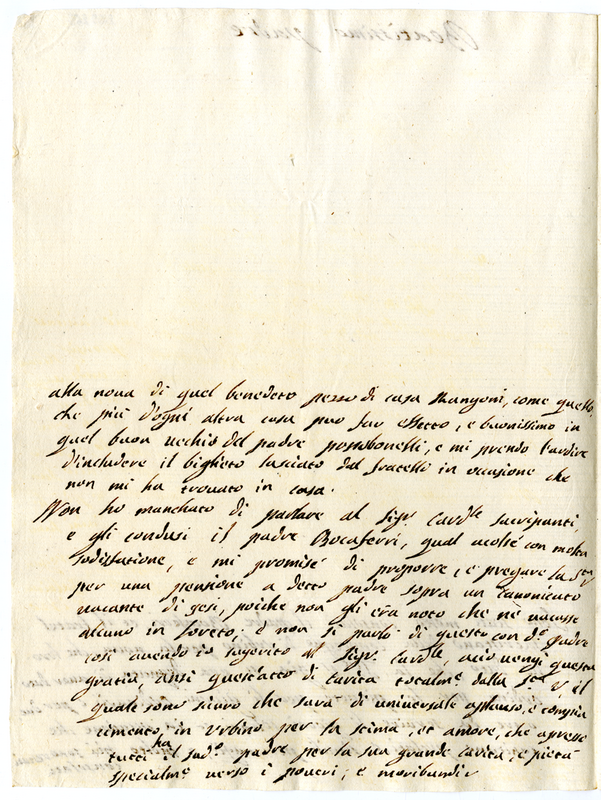 alla nova di quel benedeto pezzo di casa Mangoni, come quello,
che più d'ogni altra cosa puo far effetto, e buonissimo in
quel buon uechio del padre pombonelli, e mi prendo l'ardire
d'includere il biglieto lasciato dal fratelli in ocasione che
non mi ha trouato in casa.
Non ho manchato di parlare al Sigr Cardle Sacripanti,
e gli condusi il padre Bocaferri, qual acolse con molta
sodisfatione, e mi promise di proporre, e pregare la Stà V
per una pensione a detto padre sopra un canonicato
uacante di Gesi, poiche non gli era noto che ne uacasse
alcuno in Loreto; e non si parlò di questo con do padre
cosi auendo io sugerito al Sigr Cardle, acio uengi questa
gratia, ansi quest'atto di carita totalme dalla Stà V, il
quale sono siuro che sarà di uniuersale aplauso, e compia
cimento, in Urbino per la stima, et amore, che apresso
tutti ha il sudo padre per la sua grande carita, e pietà
specialme uerso i poueri, e moribundi
Beatissimo padre